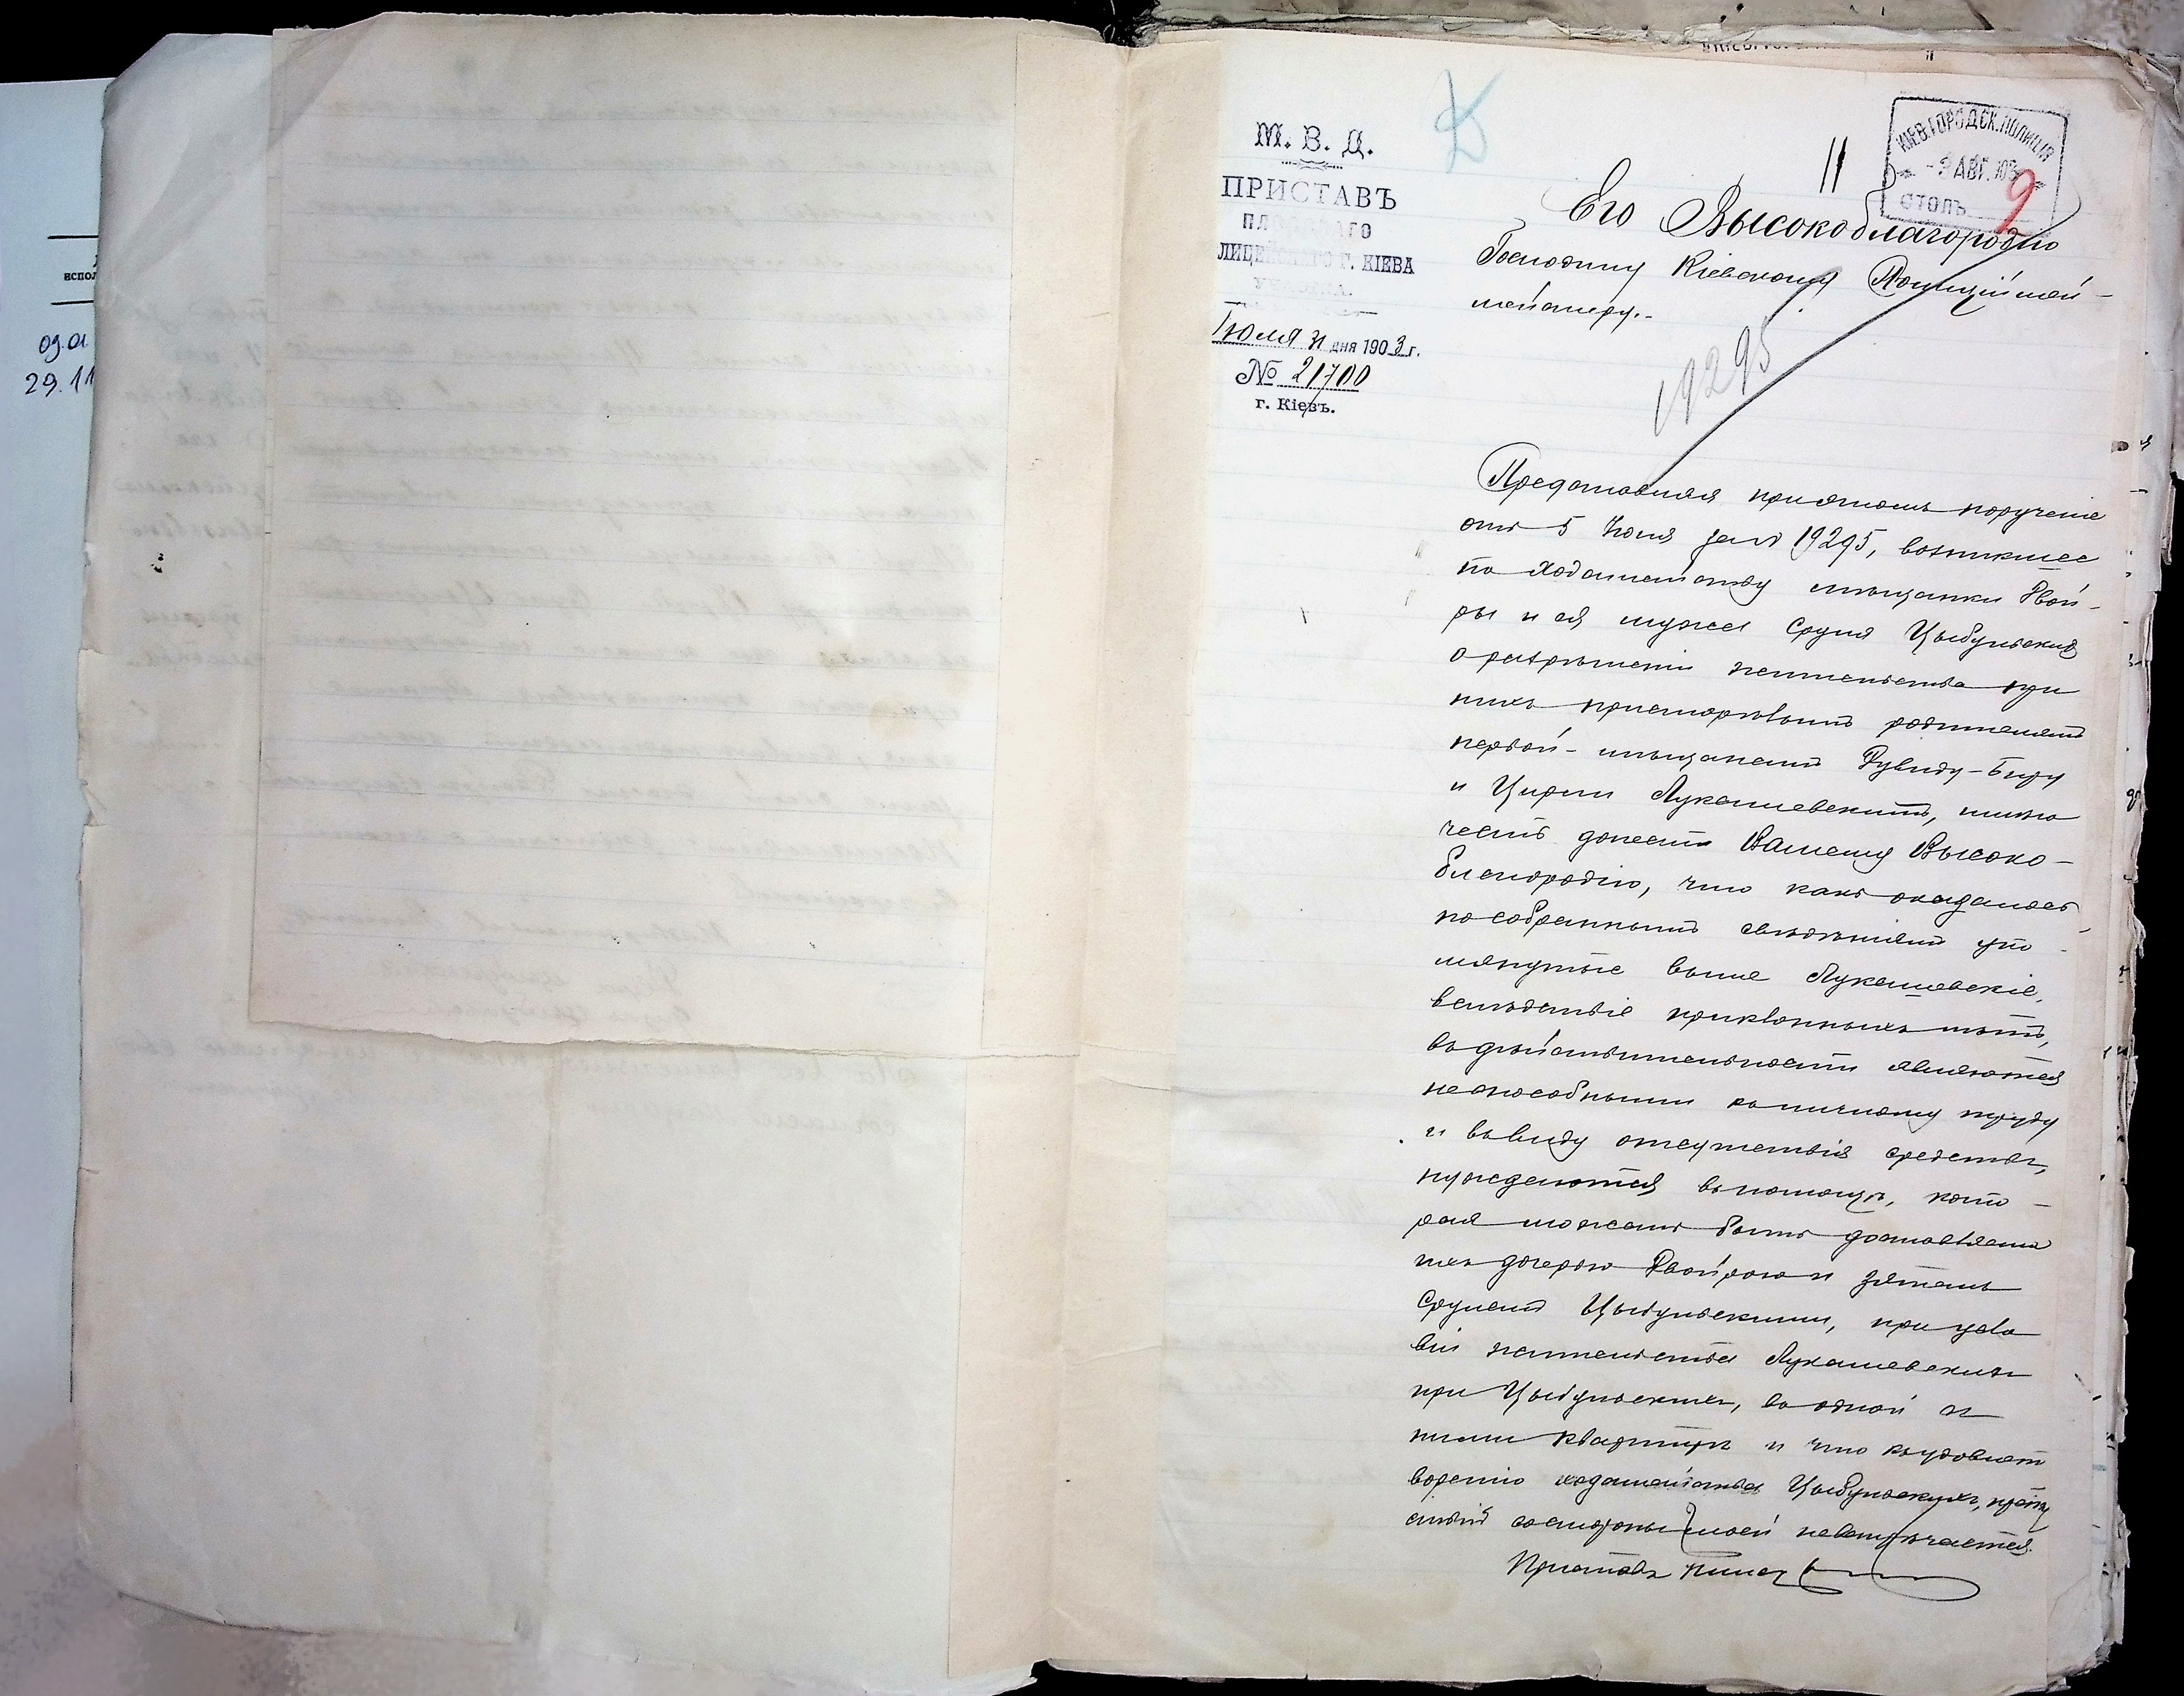 09.01
29.11
М. В. Д.
ПРИСТАВЪ
ЛИЦЕЙСКАГО Г. КІЕВА
Іюля 31 дня 1903 г.
№ 21700
г. Кіевъ.
11
КІЕВ. ГОРОДСК. ПОЛИЦІЯ
АВГ. 903
СТОЛЪ
9
Его Высокоблагородію
Господину Кіевскому Полицiймей-
мейстеру.
19295
Представляя при этомъ порученіе
отъ 5 Іюля за № 19295, возникшее
по ходатайству мѣщанки Двой-
ры и ея мужа Сруля Цыбульскихъ
о разрѣшеніи жительства при
нихъ престарѣлымъ родителямъ
первой - мѣщанамъ Рувиду-Беру
и Циріи Лукашевскимъ, имѣю
честь донести Вашему Высоко-
благородію, что какъ оказалось
по собраннымъ свѣдѣніямъ упо-
мянутые выше Лукашевскіе,
вслѣдствіе преклонныхъ лѣтъ,
въ дѣйствительности являются
неспособными къ личному труду
и ввиду отсутствія средствъ,
нуждаются въ помощи, кото-
рая можетъ быть доставляема
имъ дочерью Двойрою и зятемъ
Срулемъ Цыбульскими, при усло
віи жительства Лукашевскихъ
при Цыбульскихъ, въ одной съ
ними квартирѣ и что къ удовлет
воренію ходатайства Цыбульскихъ, препят
ствій со стороны моей не встрѣчается.
Приставъ